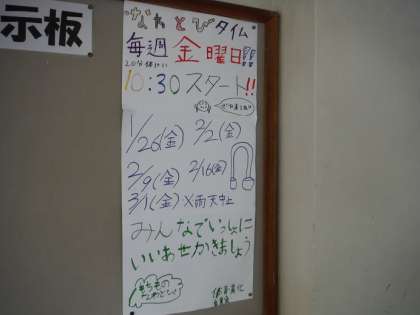 示板
なわとびタイム
毎週金曜日!!
20分休けい
10:30スタート!!
1/26(金) 2/2(金)
2/9(金) 2/16(金)
3/1(金) ×雨天中止
みんなでいっしょに
いいあせかきましょう
もちもの
なわとび